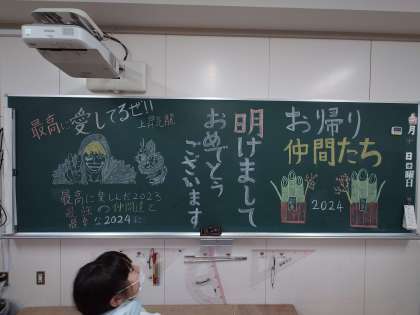 最高に愛してるぜ!!
上昇気龍
最高に楽しんだ2023
最強の仲間達と
最幸な2024に
明けまして
おめでとう
ございます
お帰り
仲間たち
2024
月
日
曜日